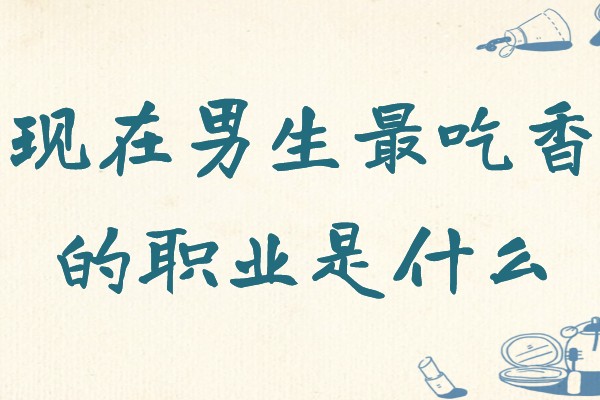 现在男生最吃香
的职业是什么